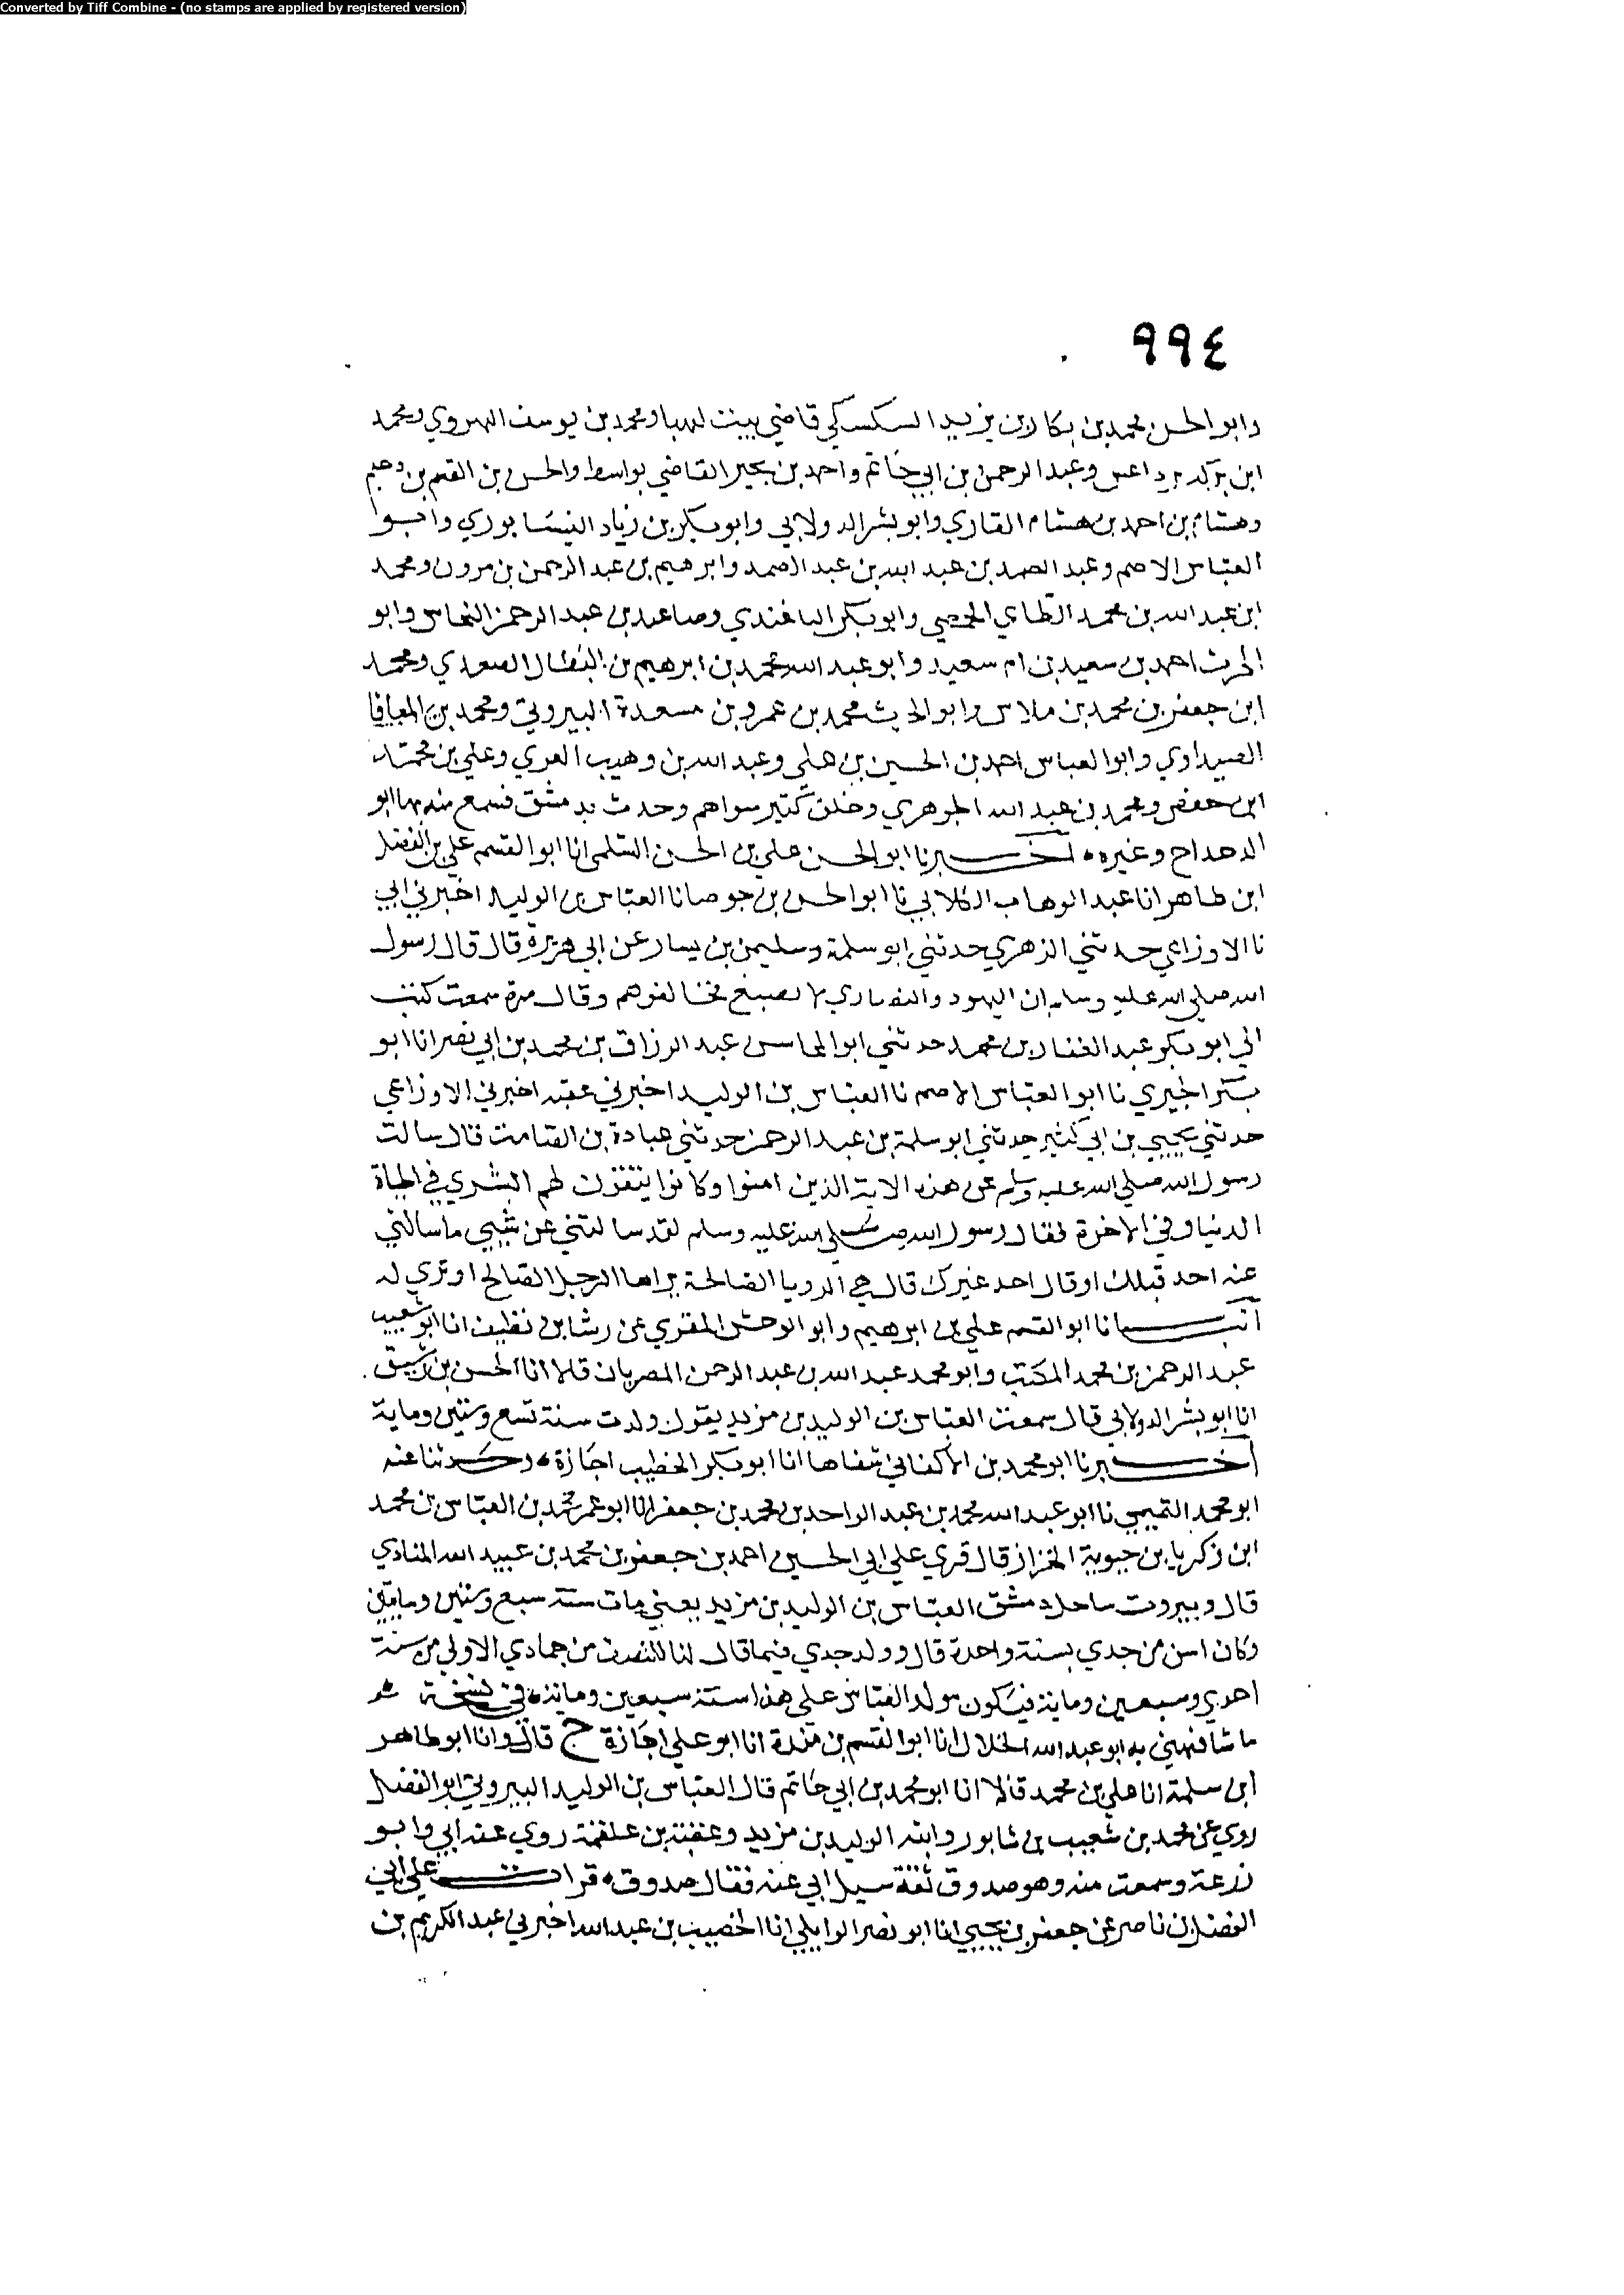 Converted by Tiff Combine - (no stamps are applied by registered version)
٩٩٤
وابو الحسن محمد بن بكار بن يزيد السكسكي قاضي بيت لهيا ومحمد بن يوسف الهروي ومحمد
ابن بركة برداعس وعبد الرحمن بن ابي حاتم واحمد بن بجير القاضي بواسط والحسن بن القسم بن دحيم
وهشام بن احمد بن هشام القاري وابو بشر الدولابي وابو بكر بن زياد النيسابوري وابوا
العباس الاصم وعبد الصمد بن عبد الله بن عبد الصمد وابرهيم بن عبد الرحمن بن مرون ومحمد
ابن عبد الله بن محمد الطاي الحمصي وابو بكر الباغندي وصاعد بن عبد الرحمن النحاس وابو
الحرث احمد بن سعيد بن ام سعيد وابو عبد الله محمد بن ابرهيم بن البطال الصعدي ومحمد
ابن جعفر بن محمد بن ملاس وابو الحرث محمد بن عمرو بن مسعدة البيروتي ومحمد بن المعافا
الصيداوي وابو العباس احمد بن الحسين بن علي وعبد الله بن وهيب العري وعلي بن محمد
ابن حفص ومحمد بن عبد الله الجوهري وخلق كثير سواهم وحدث بدمشق فسمع منه بها ابو
الدحداح وغيره اخبرنا ابو الحسن علي بن الحسن السلمي انا ابو القسم علي بن الفضل
ابن طاهر انا عبد الوهاب الكلابي نا ابو الحسن بن جوصا نا العباس بن الوليد اخبرني ابي
نا الاوزاعي حدثني الزهري حدثني ابو سلمة وسليمن بن يسار عن ابي هريرة قال قال رسول
الله صلى الله عليه وسلم ان اليهود والنصاري لا تصبغ فخالفوهم وقال مرة سمعت كتب
الي ابو بكر عبد الغفار بن محمد حدثني ابو المحاسن عبد الرزاق بن محمد بن ابي نصر انا ابو
بكر الحيري نا ابو العباس الاصم نا العباس بن الوليد اخبرني عقبه اخبرني الاوزاعي
حدثني يحيي بن ابي كثير حدثني ابو سلمة بن عبد الرحمن حدثني عبادة بن الصامت قال سالت
رسول الله صلي الله عليه وسلم عن هذه الاية الذين امنوا وكانوا يتقون لهم البشري في الحياة
الدنيا وفي الاخرة فقال رسول الله صلي الله عليه وسلم لقد سالتني عن شيي ما سالني
عنه احد قبلك او قال احد غيرك قال هي الرويا الصالحة يراها الرجل الصالح او تري له
انبانا ابو القسم علي بن ابرهيم وابو الوحش المقري عن رشا بن نظيف انا ابو شعيب
عبد الرحمن بن محمد المكتب وابو محمد عبد الله بن عبد الرحمن المصريان قالا انا الحسن بن رشيق
انا ابو بشر الدولابي قال سمعت العباس بن الوليد بن مزيد يقول ولدت سنة تسع وستين وماية
اخبرنا ابو محمد بن الاكفاني شفاها انا ابو بكر الخطيب اجازة وحدثنا عنه
ابو محمد التميمي نا ابو عبد الله محمد بن عبد الواحد بن محمد بن جعفر انا ابو عمر محمد بن العباس بن محمد
ابن زكريا بن حيوية الخزاز قال قري علي ابي الحسين احمد بن جعفر بن محمد بن عبيد الله المنادي
قال وبيروت ساحل دمشق العباس بن الوليد بن مزيد يعني مات سنة سبع وستين ومايتين
وكان اسن من جدي بسنة واحدة قال وولد جدي فيما قال لنا للنصف من جمادي الاولي من سنة
احدي وسبعين وماية فيكون مولد العباس علي هذا سنة سبعين وماية في نسخة
ما شافهني به ابو عبد الله الخلال انا ابو القسم بن مندة انا ابو علي اجازة ح قال وانا ابو طاهر
ابن سلمة انا علي بن محمد قالا انا ابو محمد بن ابي حاتم قال العباس بن الوليد البيروتي ابو الفضل
روي عن محمد بن شعيب بن شابور وابيه الوليد بن مزيد وعقبة بن علقمة روي عنه ابي وابو
زرعة وسمعت منه وهو صدوق ثقة سيل ابي عنه فقال صدوق قرات علي ابي
الفضل بن ناصر عن جعفر بن يحيي انا ابو نصر الوايلي انا الخصيب بن عبد الله اخبرني عبد الكريم بن